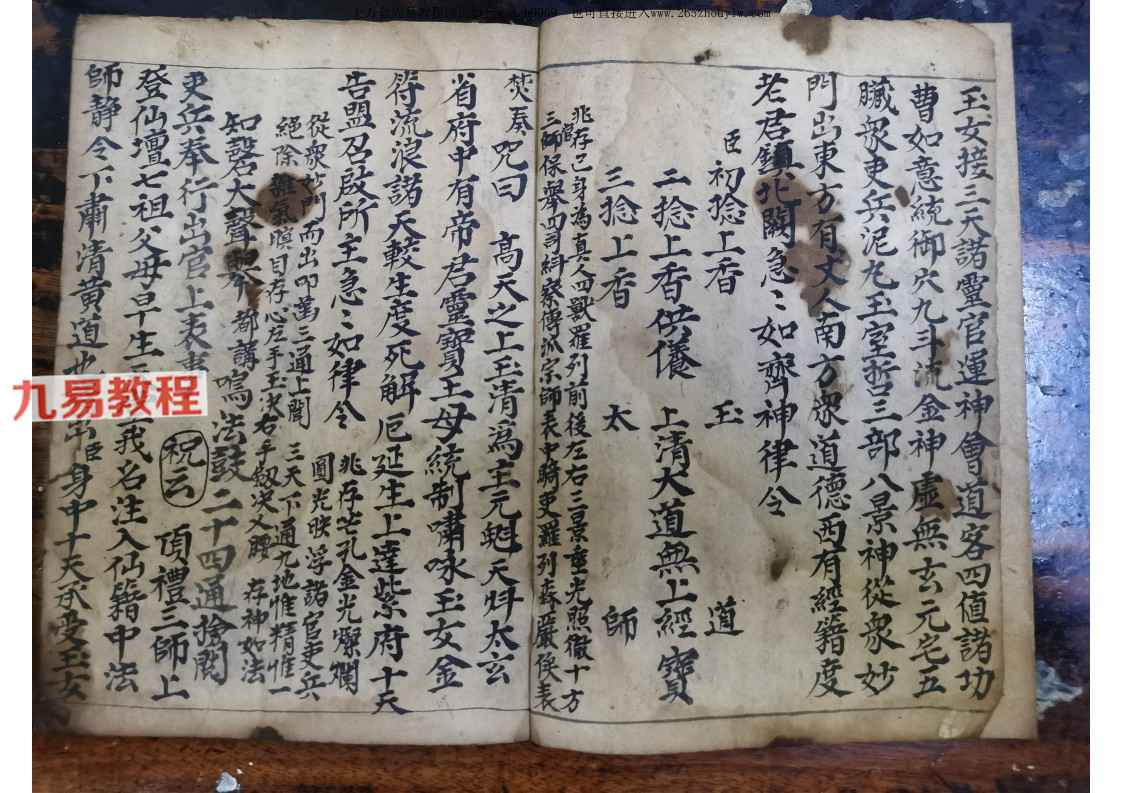 也可直接进入www.265zhouyiw.com
玉女接三天諸靈官運神會道客四值諸功
曹如意統御穴九斗流金神虛無玄元宅五
臟眾吏兵泥丸玉室哲三部八景神從眾妙
門出東方有丈人南方眾道德西有經籍度
老君鎮北闕急急如齊神律令
臣 初捻上香 玉 道
二捻上香供養 上清大道無上經寶
三捻上香 太 師
兆存己身為真人四獸羅列前後左右三景重光照徹十方
三師保舉四司糾察傳派宗師表中騎吏羅列森嚴俟表
焚奏 咒曰 高天之上玉清為主元魁天太玄
省府中有帝君靈寶王母統制嘯咏玉女金
符流浪諸天較生度死解厄延生上達紫府十天
告盟召啟所主急急如律令
兆存芒孔金光燦爛
圓光映浮諸官吏兵
從眾妙門而出叩萬三通上聞
三天下通九地惟精惟一
絕除氣瞑目存心左手玉訣右手劔次叉腰 存神如法
知磬大聲 都講鳴法鼓二十四通捨閣
吏兵奉行出官上表
祝云
頂禮三師上
登仙壇七祖父母早生 我名注入仙籍中法
師靜令下肅清黃道 臣身中十天承受玉女
九易教程